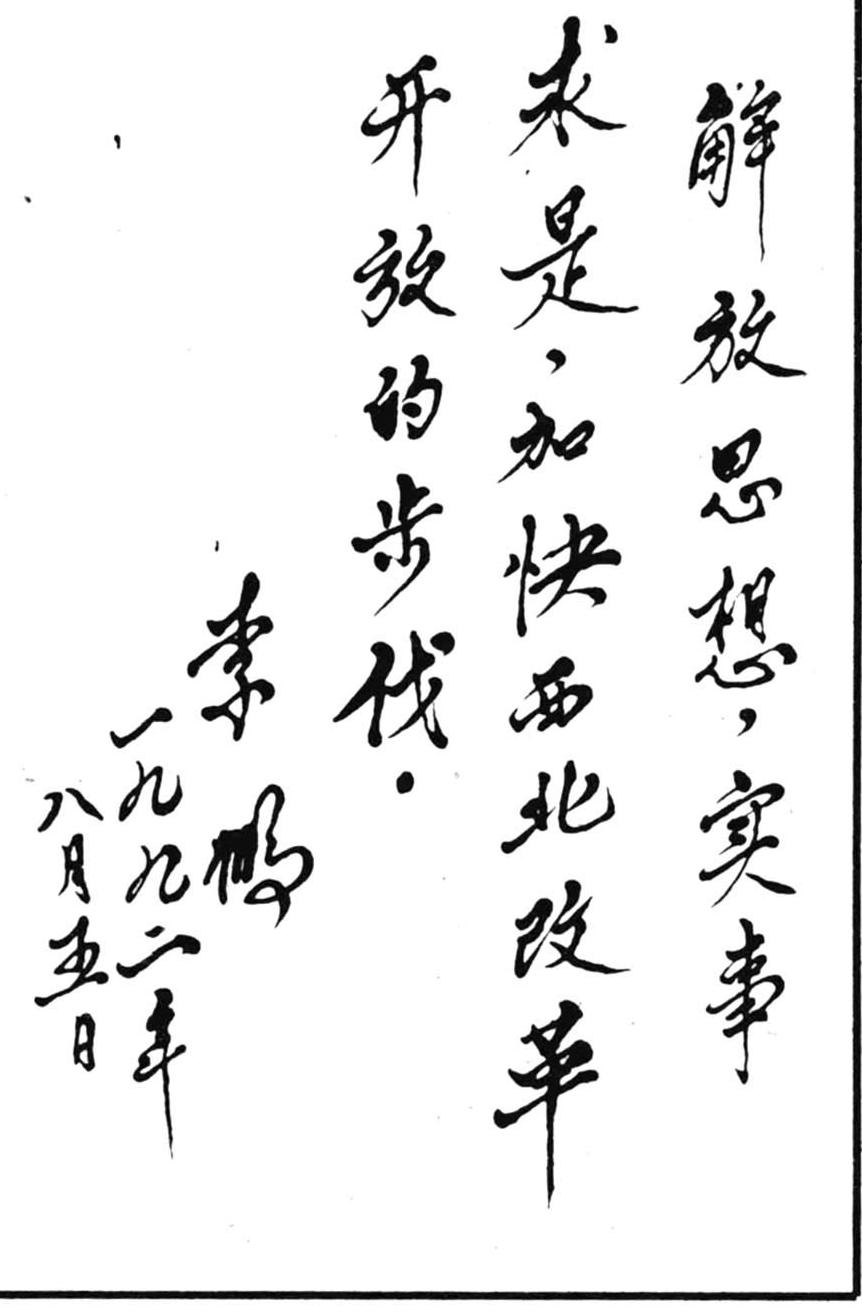 解放思想，实事
求是，加快西北改革
开放的步伐.
李鹏
一九九二年
八月五日